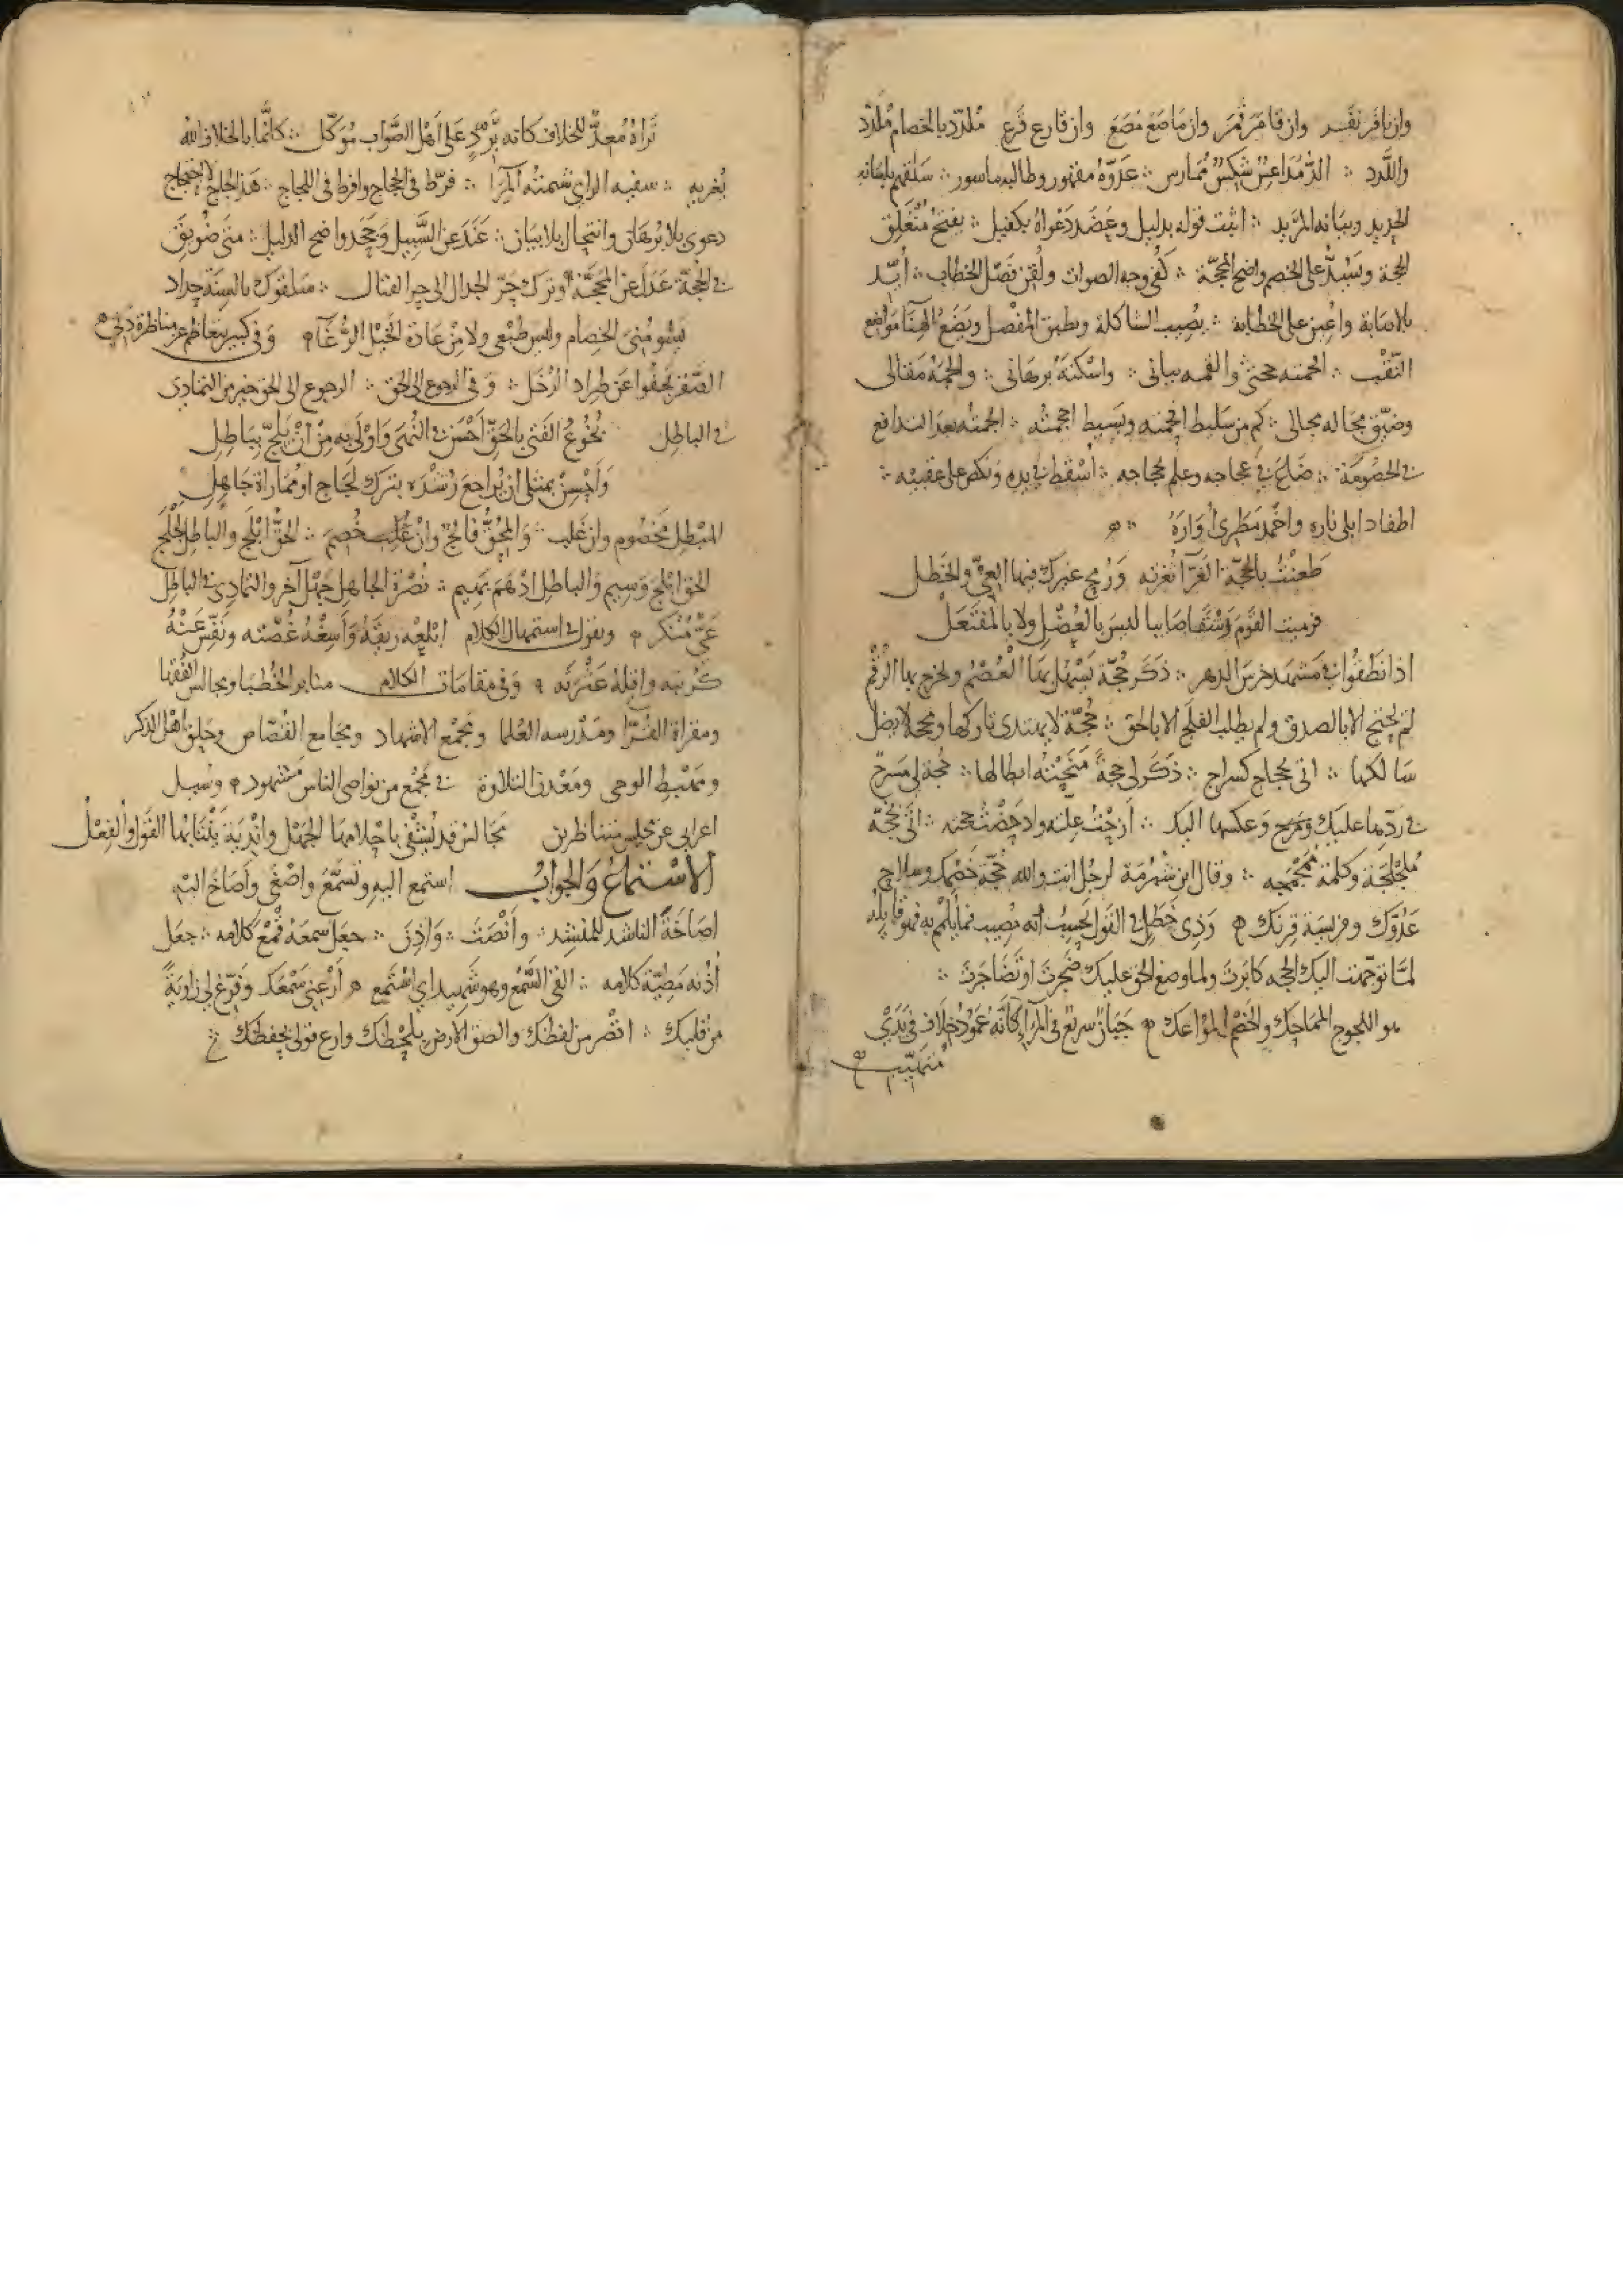 وان نافر نفر وان قامر قمر وان ماصع مصع وان قارع قرع مُلدّد بالخصام مُلَدّد
واللَّدد ∴ الدّ مُداعِسٌ شَكِسٌ مُمارس ∴ عَدوّهُ مقهور وطالبه ماسور ∴ سَلقهم بلسانه
الحديد وبيانه المزيد ∴ اثبت قوله بدليل وعَضَد دَعْواهُ بكفيل ∴ يفتح مُنْغَلِق
الحجة ويَسُدّ على الخصم واضح المحجّة ∴ كُفي وجه الصواب ولُقِن فَصْل الخطاب ∴ اُيّد
بالاصابة واُعِين على الخطابة ∴ يُصِيب الشاكلة ويطبق المفْصل ويَضَعُ الهِنَا مَواضع
النُّقْب ∴ الجمته حجتى والقمه بيانى ∴ واسْكتهُ بُرهانى ∴ والجمَهُ مَقالى
وضيّق مجاله مجالى ∴ كم من سَليط افحمته وبَسيط اجمته ∴ الجمته بعد التدافع
فى الخصُومَة ∴ ضَاعَ فى عجاجه وعلم مجاجه ∴ اُسْقِط فى يده ونكص على عقبيه ∴
اطفا دابلى ناره واخْمد مَطَرى اُوَارَهُ ∴
طَعنْتُ بالحجّة الغَرّآ ثُغْرته وَرُمح غيرك فيها العِىُّ والخَطَل
فرميت القَوْمَ رِشْقًا صَايبا ليسَ بالعُصْل ولا بالمفْتَعَلْ
اذا نَطَقُوا فى مَشهد خرسَ الدهر ∴ ذكَر حُجّة يَسْهل بها العُصْمُ ويخرج بها الرُقْم
لم يحتج الا بالصدق ولم يطلب الفلج الا بالحق ∴ حُجّة لا يهتدى تاركها ومحجة لا يضل
سَالكها ∴ اتى بحجاج كسراج ∴ ذكَر لى حجةً مَنَحِيّته ابطالها ∴ حُجة لى مَسرح
فى ردّها عليك ومَرح وَعكسها اليك ∴ اَزحْتُ عِلته وادحَضْت حجته ∴ اتى بحُجّة
مُلجْلجَة وكلمة مُجَمْجمه ∴ وقال ابن شُبْرُمَة لرجُل انت والله حُجّة خَصْمك وسلاح
عَدُوّك وفريسَة قِرنك ∴ وَذى خَطَلٍ فى القَول يَحسِبُ اَنه مُصيب فما يُلْمِمْ به فهو قايله
لمّا توجّهت اليك الحجه كابَرت ولما وضح الحق عليك ضَجِرتَ او تَضاجَرتَ ∴
هو اللجوج المماحك والخَصْم المواعك ∴ جَبَانٌ سريع فى المِرَاءِ كاَنَّه عَمودُ خِلاف فى يَدَىْ
مُتهيّب
تَراهُ مُعدًّا للخلاف كانه بِرَدٍّ عَلى اَهل الصَّواب مُوكّل ∴ كانّما بالخلاف الله
يُغريه ∴ سفيه الراى شيمته المِرَا ∴ فرّط فى الحِجاج وافرط فى اللجاج ∴ هَذا لَجاج لا احتجاج
دعوى بلا بُرهان وانتحال بلا بيان ∴ عَنَدَ عن السَّبيل وجَحَد واضح الدليل ∴ متى ضُويقَ
فى الحجّة عَدَل عن المحَجَّة وترك حَرّ الجدال الى حر القتال ∴ سَلقوك بالسِنَة حِداد
يَسُومُنى الخِصام وليس طَبْعى ولا مِنْ عَادة الخَيْل الرُّغاء وَفى كبير يتعاظم عن مناظرة دَنىّ
الصّقر يَجفُوا عَن طِراد الدُخَل ∴ وَفى الرجوع الى الحق ∴ الرجوع الى الحق خير من التمادى
فى الباطل بخُوعُ الفَتَى بالحَقّ اَحْسَن فى النُّهَى وَاوْلى بِه مِن اَنْ يَلجّ بِبَاطِل
وَاَحْسِنْ بمثلى ان يُراجعَ رُشْدَه بترك لجَاجٍ او مُمَاراة جَاهِل
المُبْطل مَخْصُوم وان غَلب ∴ وَالمُحِقُّ فالجٌ وانْ غُلِب خُصِمَ ∴ الحَقُّ ابْلَج والباطل لَجْلَج
الحق ابْلج وَسِيم وَالباطل ادْهَم بَهِيم ∴ نُصْرة الجاهل جَهْل آخر والتمادى فى الباطل
غَىٌّ مُنكر ∴ ويقول فى استمهال الكلام ابْلعْه ريقَهُ وَاَسِغْهُ غُصّته ونَفِّسْ عَنْهُ
كُربته واقِلهُ عَثْرَته ∴ وَفى مقامات الكلام منابر الخُطبا ومجالس الفُقها
ومقراة القُرّا ومَدرسه العُلما ومَجْمع الاشهاد ومجامع القُصّاص وحَلِق اهل الذكر
ومَهْبط الوحى ومَعْدن التلاوة فى مَجْمَع من نواصى الناس مَشهُود ∴ وسُيل
اعرابى عن مجلس متناظرين مَجَالسُ قد يُشْفَى باحْلامها الجَهْل واَنْدِيَة يَنْتَابُها القَول والفِعْلُ
الاسْتماعُ وَالجوابُ استمع اليه وتَسمَّعَ واصْغَى واَصَاخَ اليْه
اصَاخَةَ الناشد للمُنشِد ∴ وانْصَتَ ∴ وَاذِنَ ∴ جعَل سمعَهُ قِمْعَ كلامه ∴ جعَل
اُذُنه مَطِيّة كلامه ∴ القى السَّمْع وهو شَهيد اى اسْتَمع ∴ اَرْعِنى سَمْعَك وَفَرّغ لى زاويَةً
من قلبك ∴ اقصُر من لفظك والصق الارض بلحْظك وارع قولى بحفظك